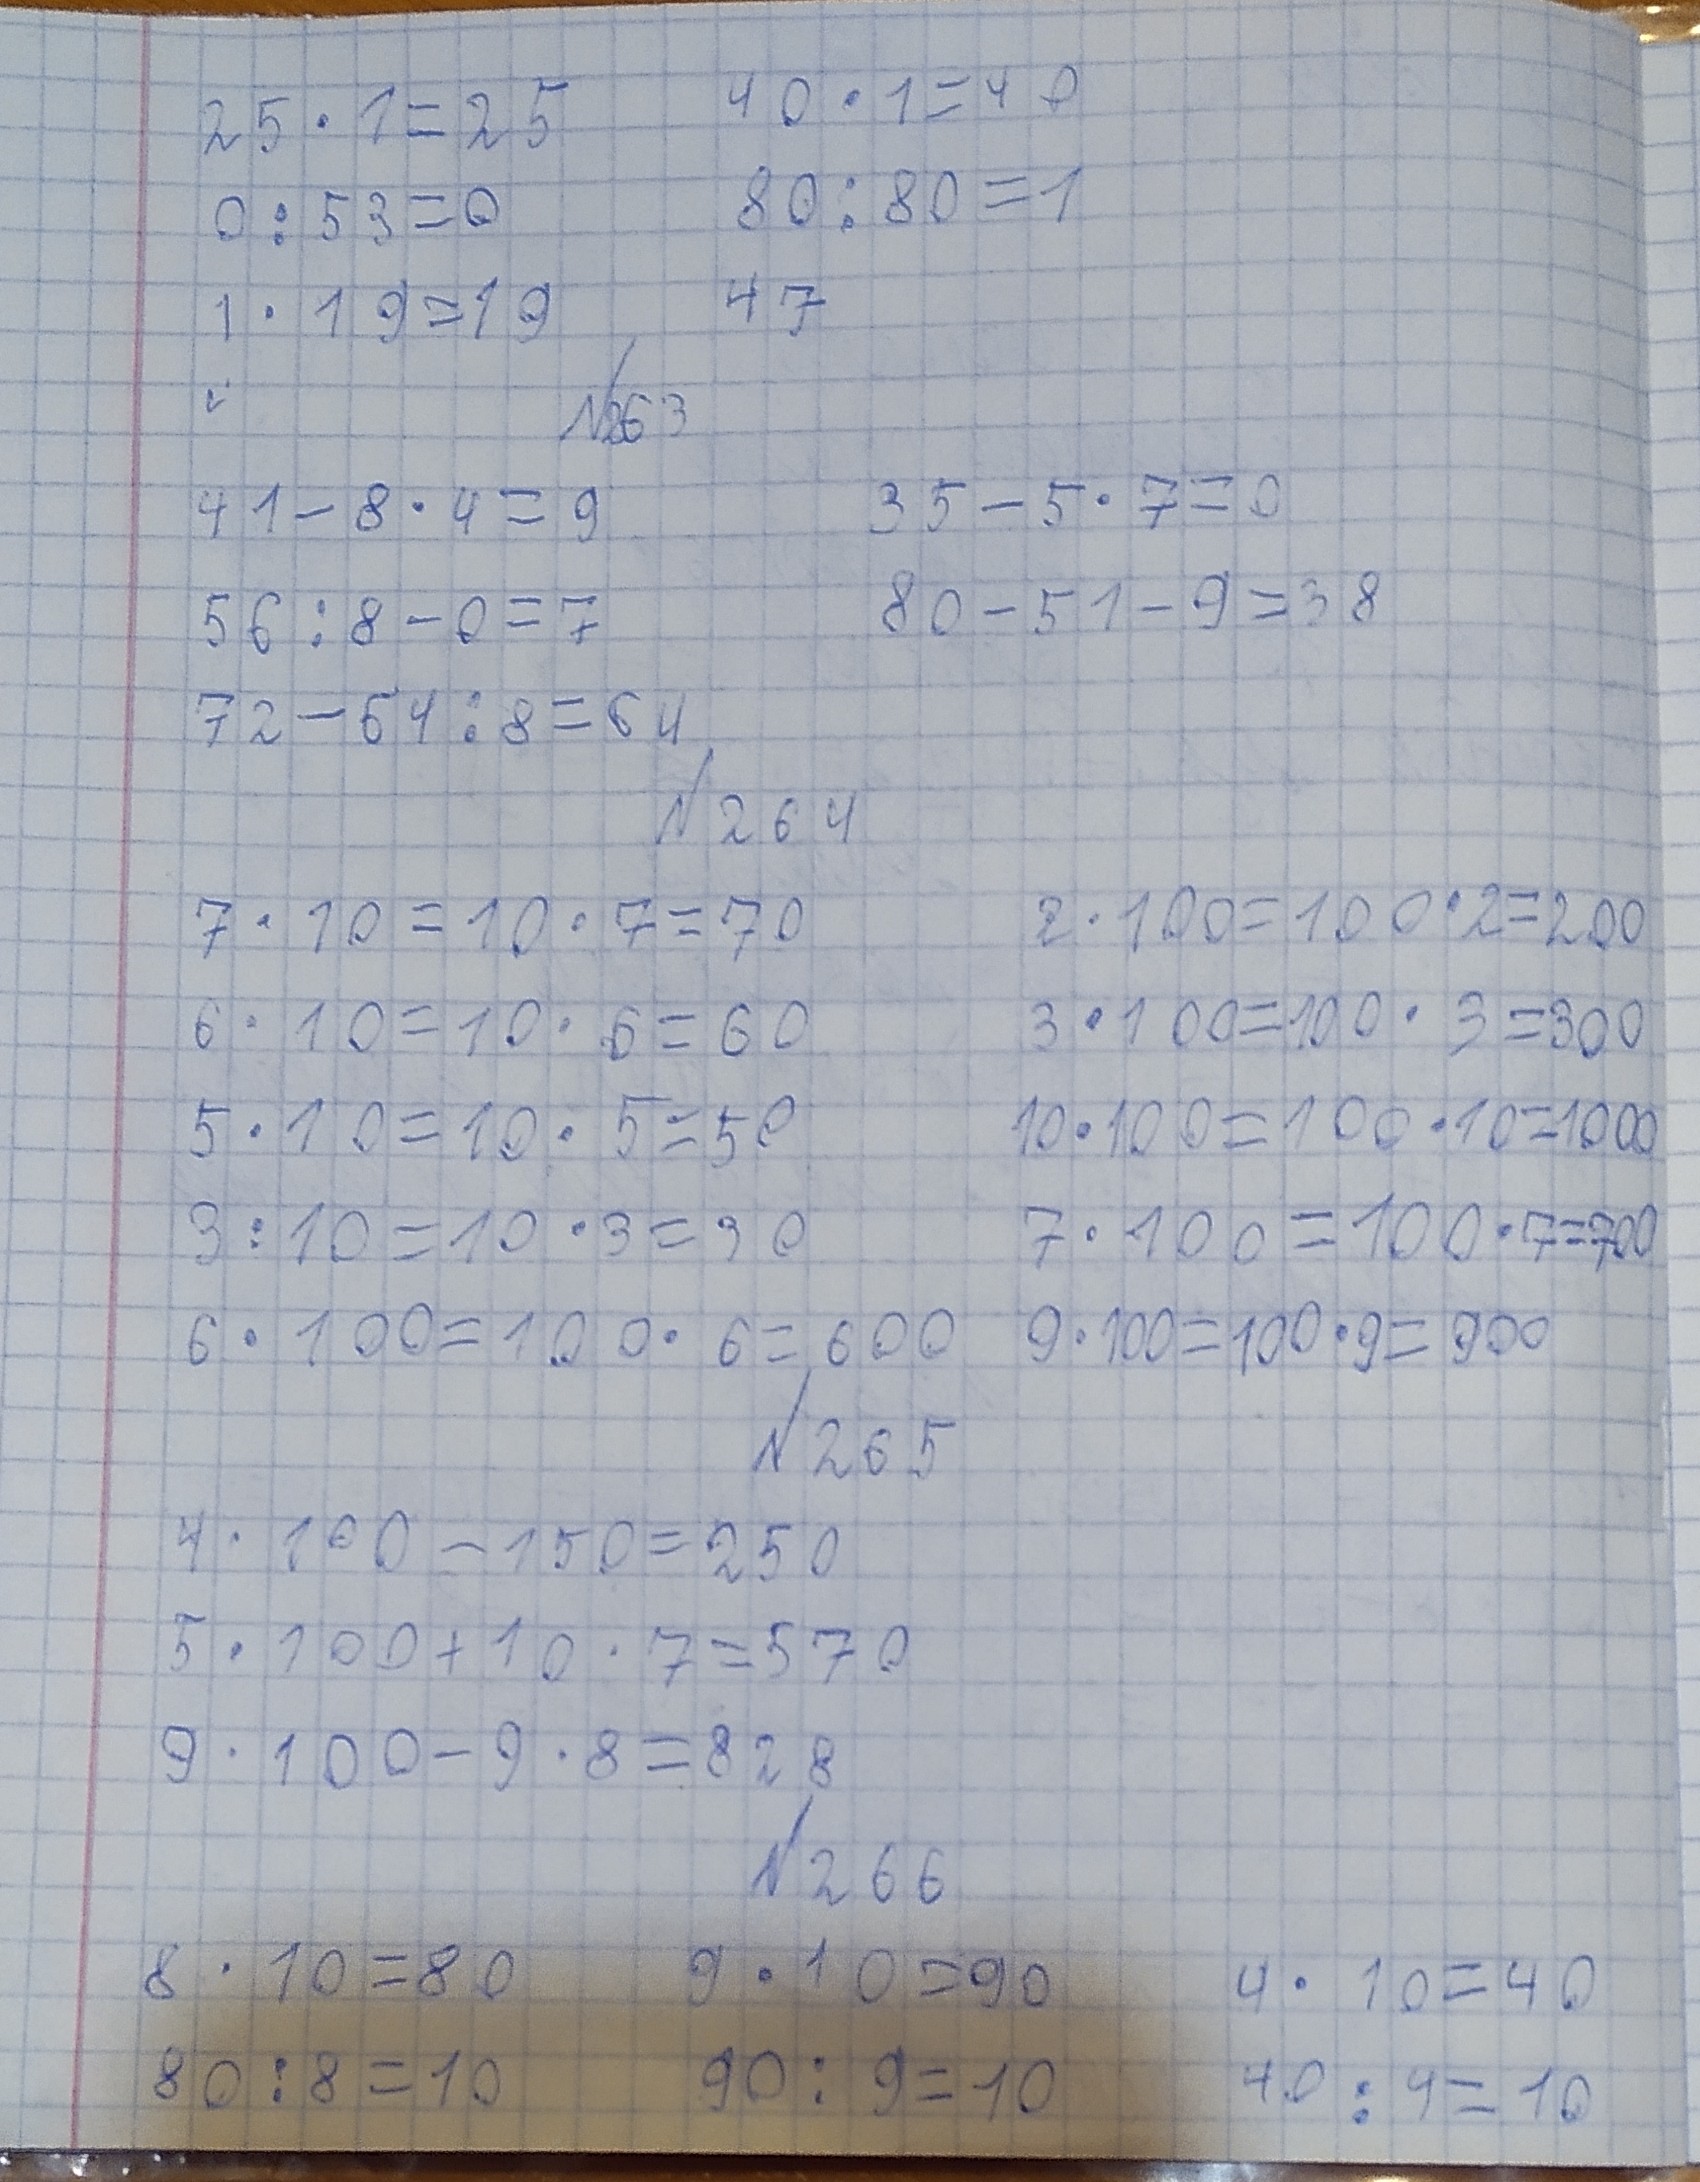 25·1=25 40·1=40
0:53=0 80:80=1
1·19=19 47
№263
41-8·4=9 35-5·7=0
56:8-0=7 80-51-9=38
72-64:8=64
№264
7·10=10·7=70 2·100=100·2=200
6·10=10·6=60 3·100=100·3=300
5·10=10·5=50 10·100=100·10=1000
3:10=10·3=30 7·100=100·7=700
6·100=100·6=600 9·100=100·9=900
№265
4·100-150=250
5·100+10·7=570
9·100-9·8=828
№266
8·10=80 9·10=90 4·10=40
80:8=10 90:9=10 40:4=10